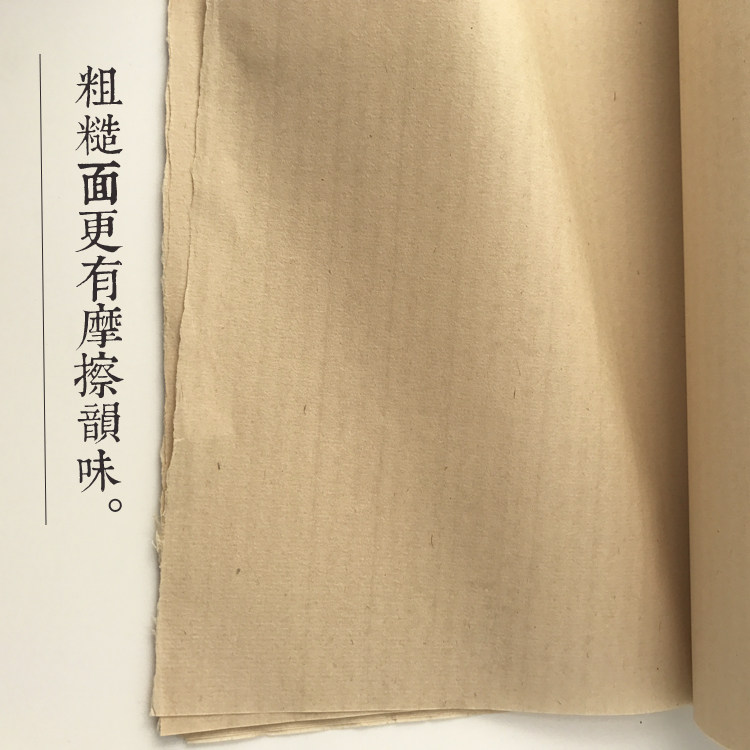 粗糙面更有摩擦韻味。